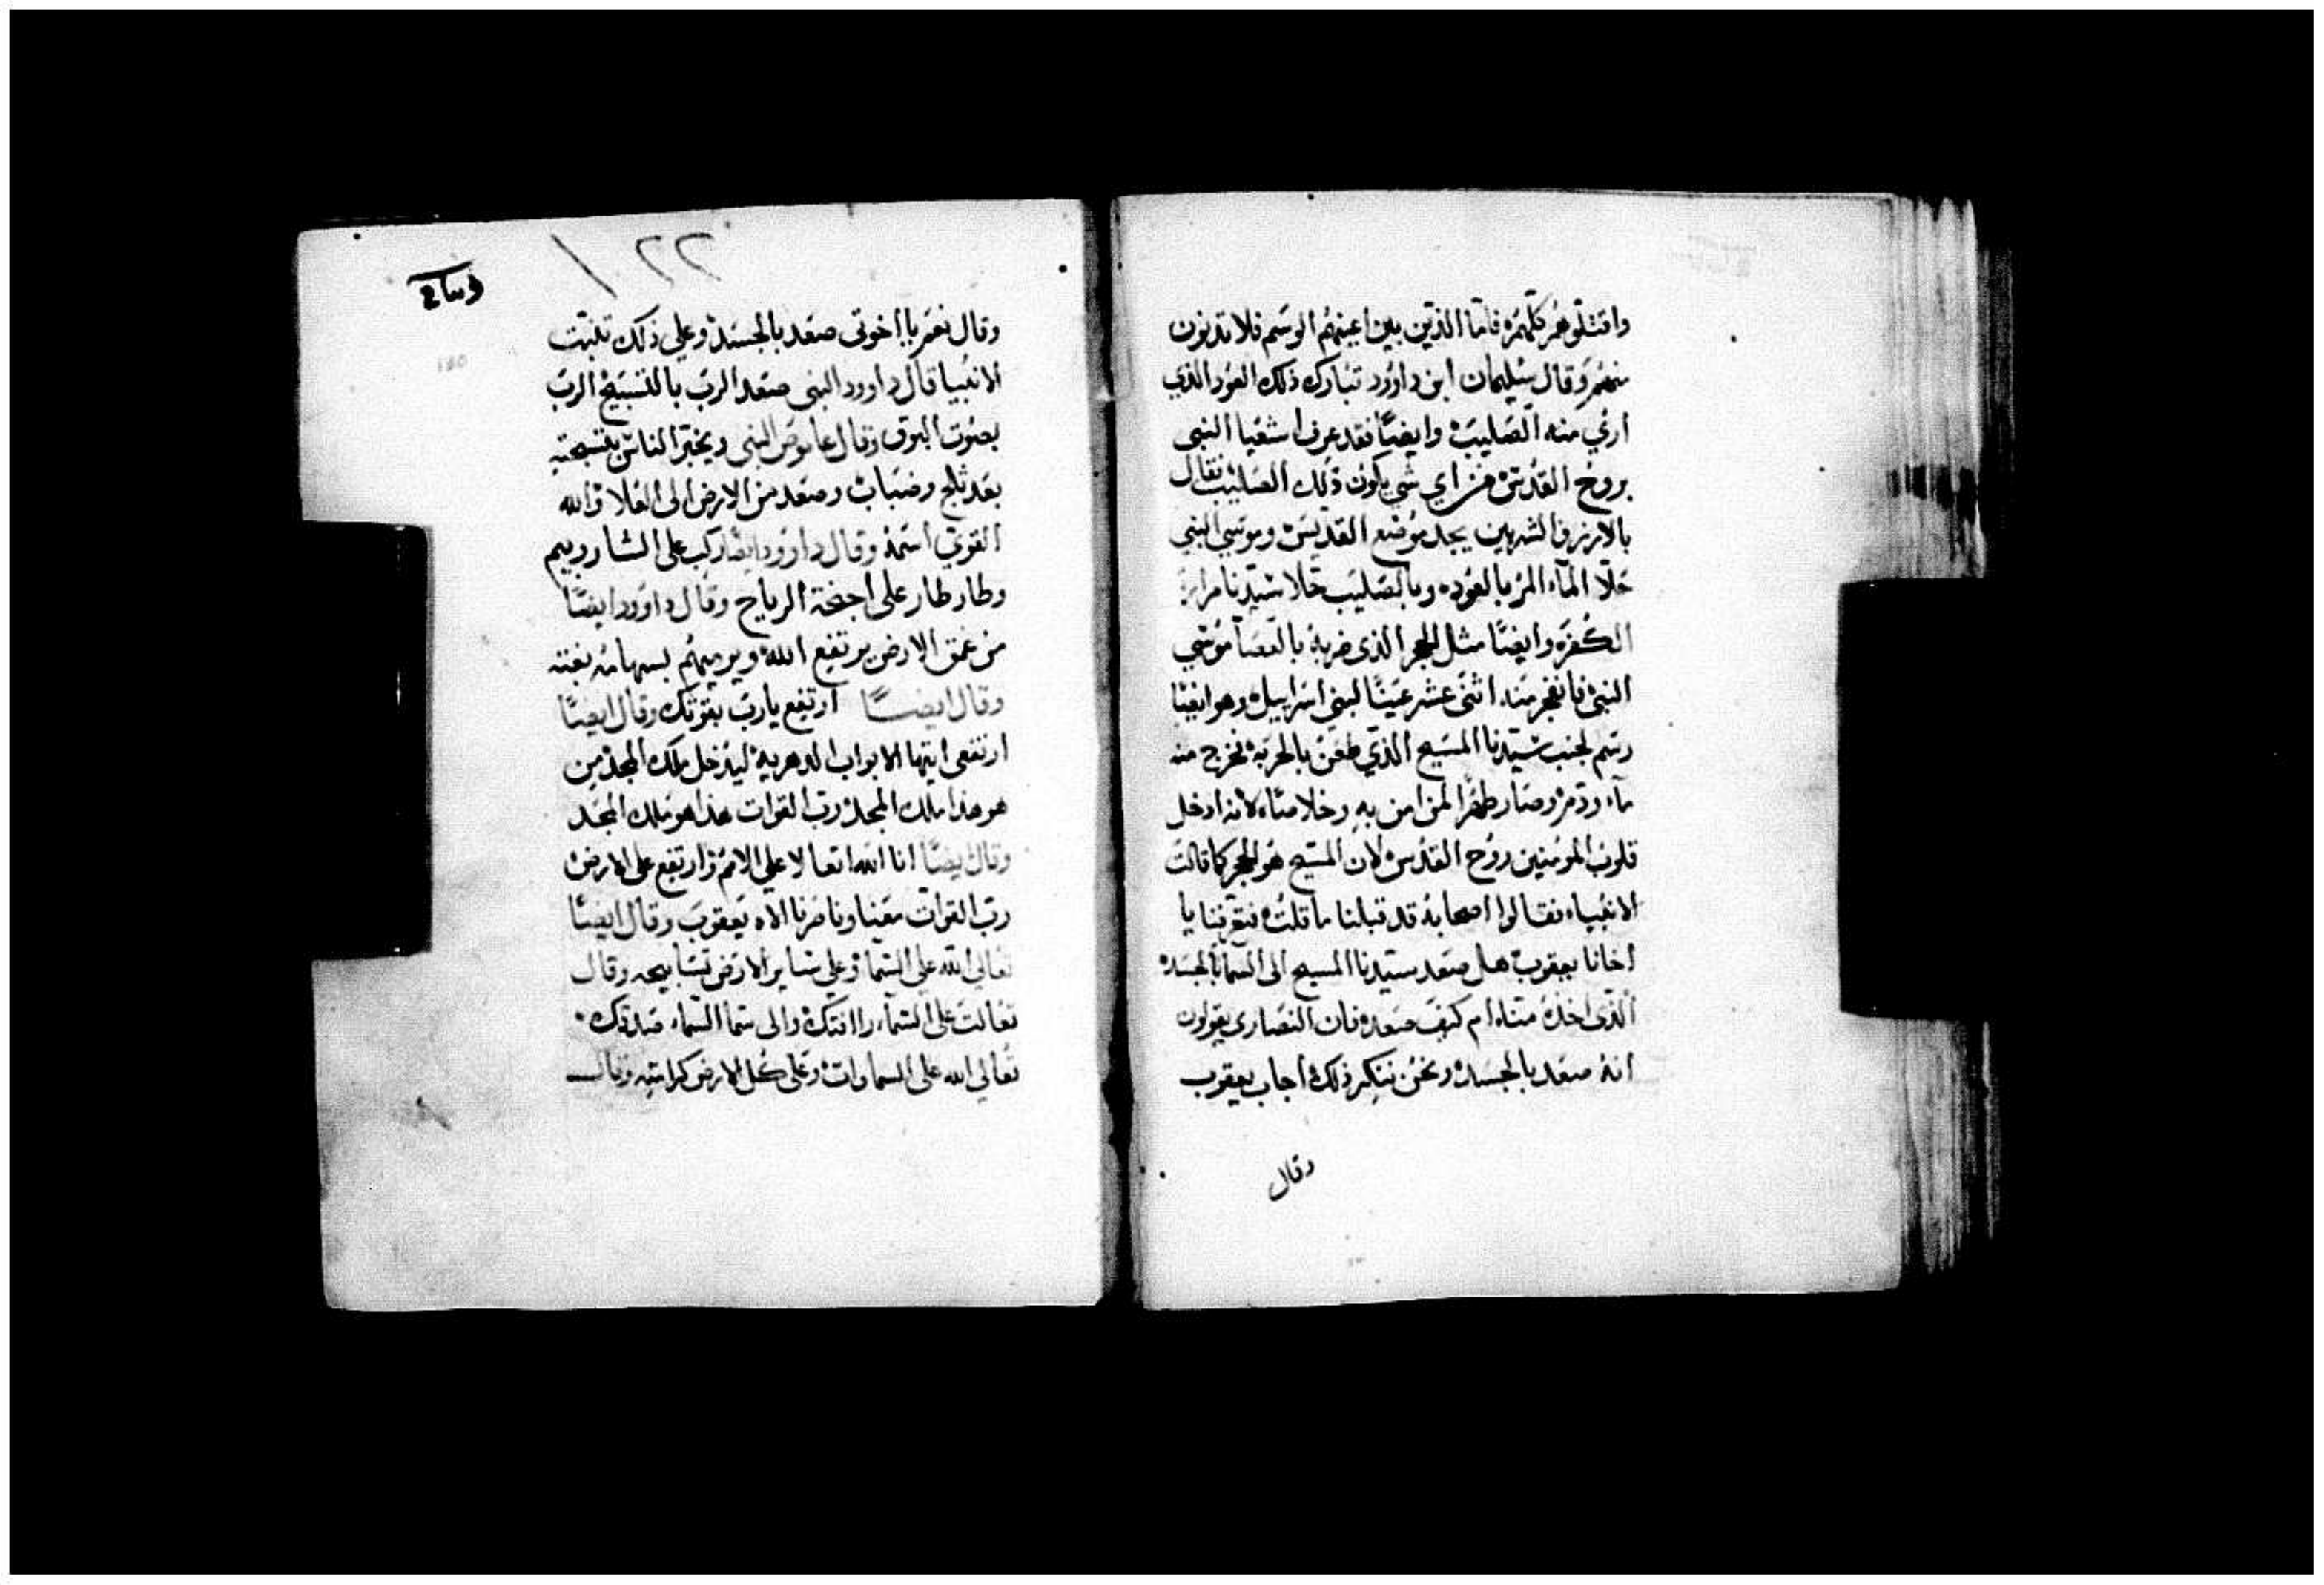 واقتلوهم كلهم فاما الذين بين اعينهم الوسم فلا تدنون
منهم وقال سليمان ابن داوود تبارك ذلك العود الذي
اري منه الصليب وايضًا فقد عرف اشعيا النبي
بروح القدس من اي شي يكون ذلك الصليب فقال
بالارز والشربين يجد موضع القديس وموسي النبي
حلا المآء المر بالعود وبالصليب حلا سيدنا مرارة
الكفره وايضًا مثل الحجر الذى ضربه بالعصا موسي
النبي فانفجر منه اثنى عشر عينًا لبني اسراييل وهو ايضًا
رسم لجنب سيدنا المسيح الذي طعن بالحربه فخرج منه
مآء ودم وصار طهرا لمن امن به وخلاصًا لانه ادخل
قلوب المومنين روح القدس لان المسيح هو الحجر كما قالت
الانبياء فقالوا اصحابه قد قبلنا ما قلت فتعرفنا يا
اخانا يعقوب هل صعد سيدنا المسيح الى السما بالجسد
الذى اخذه منا ام كيف صعد فان النصارى يقولون
انه صعد بالجسد ونحن ننكر ذلك اجاب يعقوب
وقال
١٢٢
وقال نعم يا اخوتى صعد بالجسد وعلي ذلك تنبت
الانبيا قال داوود النبى صعد الرب بالتسبيح الرب
بصوت البوق وقال عاموص النبى ويخبر الناس بتسبحته
بعد ثلج وضباب وصعد من الارض الى العلا والله
القوي اسمه وقال داوود ايضا ركب على الشاروبيم
وطار طار على اجنحة الرياح وقال داوود ايضًا
من عمق الارض يرتفع الله ويرميهم بسهامه بغته
وقال ايضًا ارتفع يا رب بقوتك وقال ايضًا
ارتفعى ايتها الابواب الدهريه ليدخل ملك المجد من
هو هذا ملك المجد رب القوات هذا هو ملك المجد
وقال ايضًا انا الله اتعالا علي الامم وارتفع على الارض
رب القوات معينا وناصرنا الاه يعقوب وقال ايضًا
تعالي الله علي السما وعلي ساير الارض تسابيحه وقال
تعالت على السمآء رافتك والى سما السماء صدقك
تعالي الله على السماوات وعلى كل الارض كرامته وقال